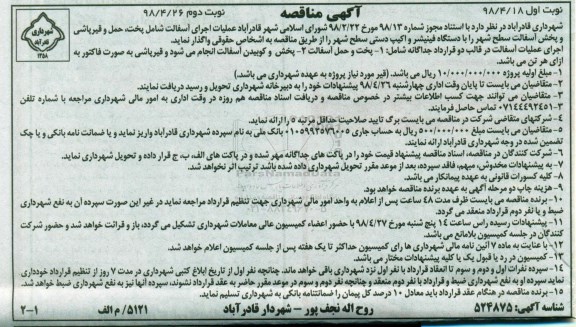 نوبت اول ۹۸/۴/۱۸
آگهی مناقصه
نوبت دوم ۹۸/۴/۲۶
شهرداری قادرآباد
۱۳۵۸
شهرداری قادرآباد در نظر دارد با استناد مجوز شماره ۹۸/۱۳ مورخ ۹۸/۲/۲۲ شورای اسلامی شهر قادرآباد عملیات اجرای آسفالت شامل پخت، حمل و قیرپاشی
و پخش آسفالت سطح شهر را با دستگاه فینیشر و اکیپ دستی سطح شهر را از طریق مناقصه به اشخاص حقوقی واگذار نماید.
اجرای عملیات آسفالت در قالب دو قرارداد جداگانه شامل: ۱- پخت و حمل آسفالت ۲- پخش و کوبیدن آسفالت انجام می شود و قیرپاشی به صورت فاکتور به
ازای هر تن می باشد.
۱- مبلغ اولیه پروژه ۱۰/۰۰۰/۰۰۰/۰۰۰ ریال می باشد. (قیر مورد نیاز پروژه به عهده شهرداری می باشد.)
۲- متقاضیان می بایست تا پایان وقت اداری چهارشنبه ۹۸/۴/۲۶ پیشنهادات خود را به دبیرخانه شهرداری تحویل و رسید دریافت نمایند.
۳- متقاضیان می توانند جهت کسب اطلاعات بیشتر در خصوص مناقصه و دریافت اسناد مناقصه هم روزه در وقت اداری به امور مالی شهرداری مراجعه با شماره تلفن
۰۷۱۴۴۴۹۲۴۵۱-۳ تماس حاصل فرمایند.
۴- شرکتهای متقاضی شرکت در مناقصه می بایست برگ تایید صلاحیت حداقل مرتبه ۵ را ارائه نمایند.
۵- متقاضیان می بایست مبلغ ۵۰۰/۰۰۰/۰۰۰ ریال به حساب جاری ۰۱۰۵۹۹۳۵۷۶۰۰۵ بانک ملی به نام سپرده شهرداری قادرآباد واریز نماید و یا ضمانت نامه بانکی و یا چک
تضمین شده در وجه شهرداری قادرآباد ارائه نمایند.
۶- شرکت کنندگان در مناقصه، اسناد مناقصه پیشنهاد قیمت خود را در پاکت های جداگانه مهر شده و در پاکت های الف، ب، ج قرار داده و تحویل شهرداری نماید.
۷- به پیشنهادات مخدوش، مبهم، فاقد سپرده، بعد از موعد مقرر تحویل شهرداری داده شده باشد ترتیب اثر نخواهد شد.
۸- کلیه کسورات قانونی به عهده پیمانکار می باشد.
۹- هزینه چاپ دو مرحله آگهی به عهده برنده مناقصه خواهد بود.
۱۰- برنده مناقصه می بایست ظرف مدت ۴۸ ساعت پس از اعلام به واحد امور مالی شهرداری جهت تنظیم قرارداد مراجعه نماید در غیر این صورت سپرده آن به نفع شهرداری
ضبط و یا نفر دوم قرارداد منعقد می گردد.
۱۱- پیشنهادات رسیده راس ساعت ۱۴ پنج شنبه مورخ ۹۸/۴/۲۷ با حضور اعضاء کمیسیون عالی معاملات شهرداری تشکیل می گردد، باز و قرائت خواهد شد و حضور شرکت
کنندگان در جلسه کمیسیون بلامانع می باشد.
۱۲- با عنایت به ماده ۷ آئین نامه مالی شهرداری ها رای کمیسیون حداکثر تا یک هفته پس از جلسه کمیسیون اعلام خواهد شد.
۱۳- کمیسیون در رد یا قبول یک یا کلیه پیشنهادات مختار می باشد.
۱۴- سپرده نفرات اول و دوم و سوم تا انعقاد قرارداد با نفر اول نزد شهرداری باقی خواهد ماند. چنانچه نفر اول از تاریخ ابلاغ کتبی شهرداری در مدت ۷ روز از تنظیم قرارداد خودداری
نماید سپرده او به نفع شهرداری ضبط و قرارداد با نفر دوم منعقد و چنانچه نفر دوم و سوم در موعد مقرر حاضر به عقد قرارداد نشوند، سپرده آنها نیز به نفع شهرداری ضبط خواهد شد.
۱۵- برنده مناقصه در هنگام عقد قرارداد باید معادل ۱۰ درصد کل پیمان را ضمانتنامه بانکی به شهرداری تسلیم نماید.
شناسه آگهی: ۵۲۴۸۷۵
روح اله نجف پور - شهردار قادرآباد
۵۱۲۱/ م الف
۲-۱